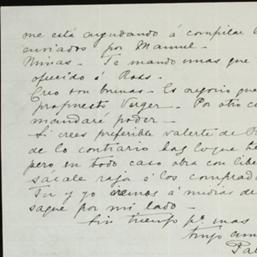 me está ayudando á compilar
enviados por Manuel -
Minas - Te mando unas que
ofrecido á Ross -
Creo son buenas - Es negocio que
Propuesto Verger - Por otro co
mandaré poder -
Si crees preferible valerte de R
de lo contrario las que he
pero en todo caso obra con liber
sácale raja á los comprad
Tu y yo iremos á medias de
saque por mi lado -
Sin tiempo pa. mas
tuyo
Pab